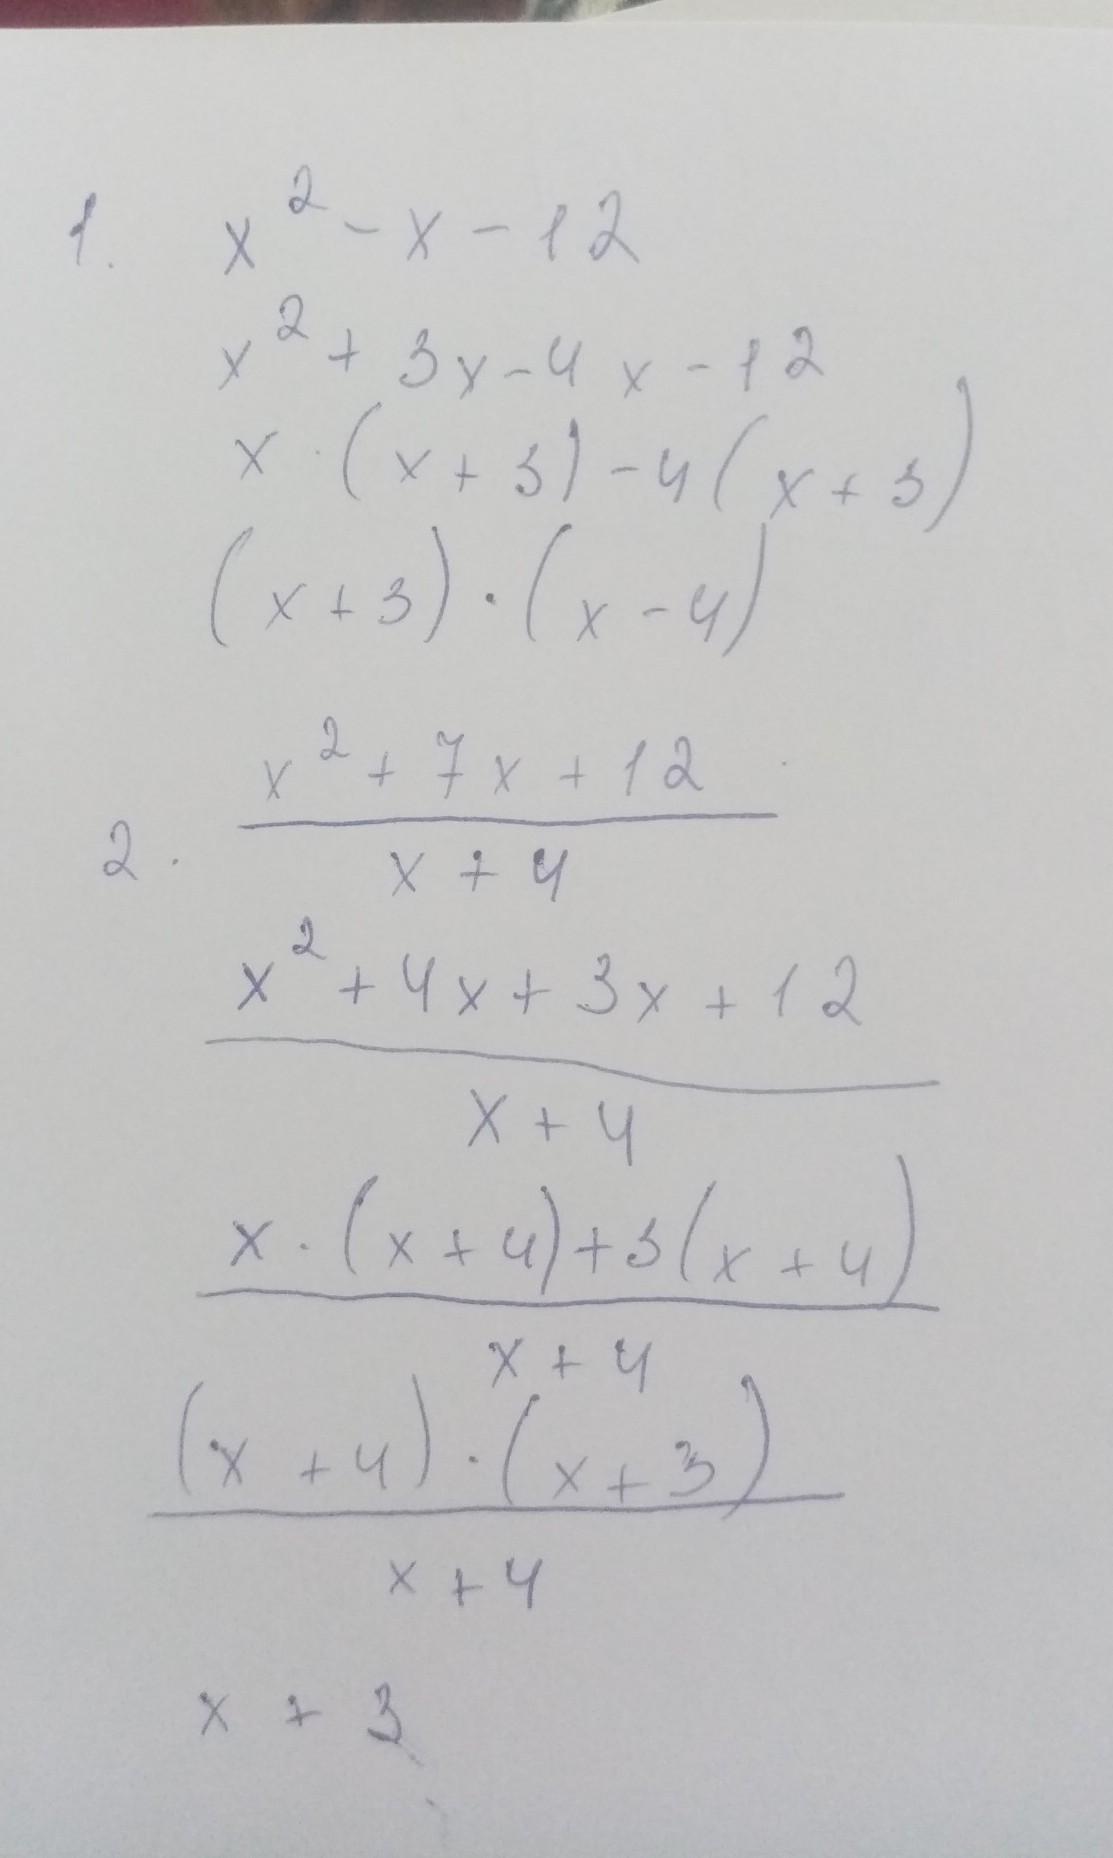 1. x² - x - 12
x² + 3x - 4x - 12
x · (x + 3) - 4(x + 3)
(x + 3) · (x - 4)
x² + 7x + 12
2. ―――
x + 4
x² + 4x + 3x + 12
―――
x + 4
x · (x + 4) + 3(x + 4)
―――
x + 4
(x + 4) · (x + 3)
―――
x + 4
x + 3